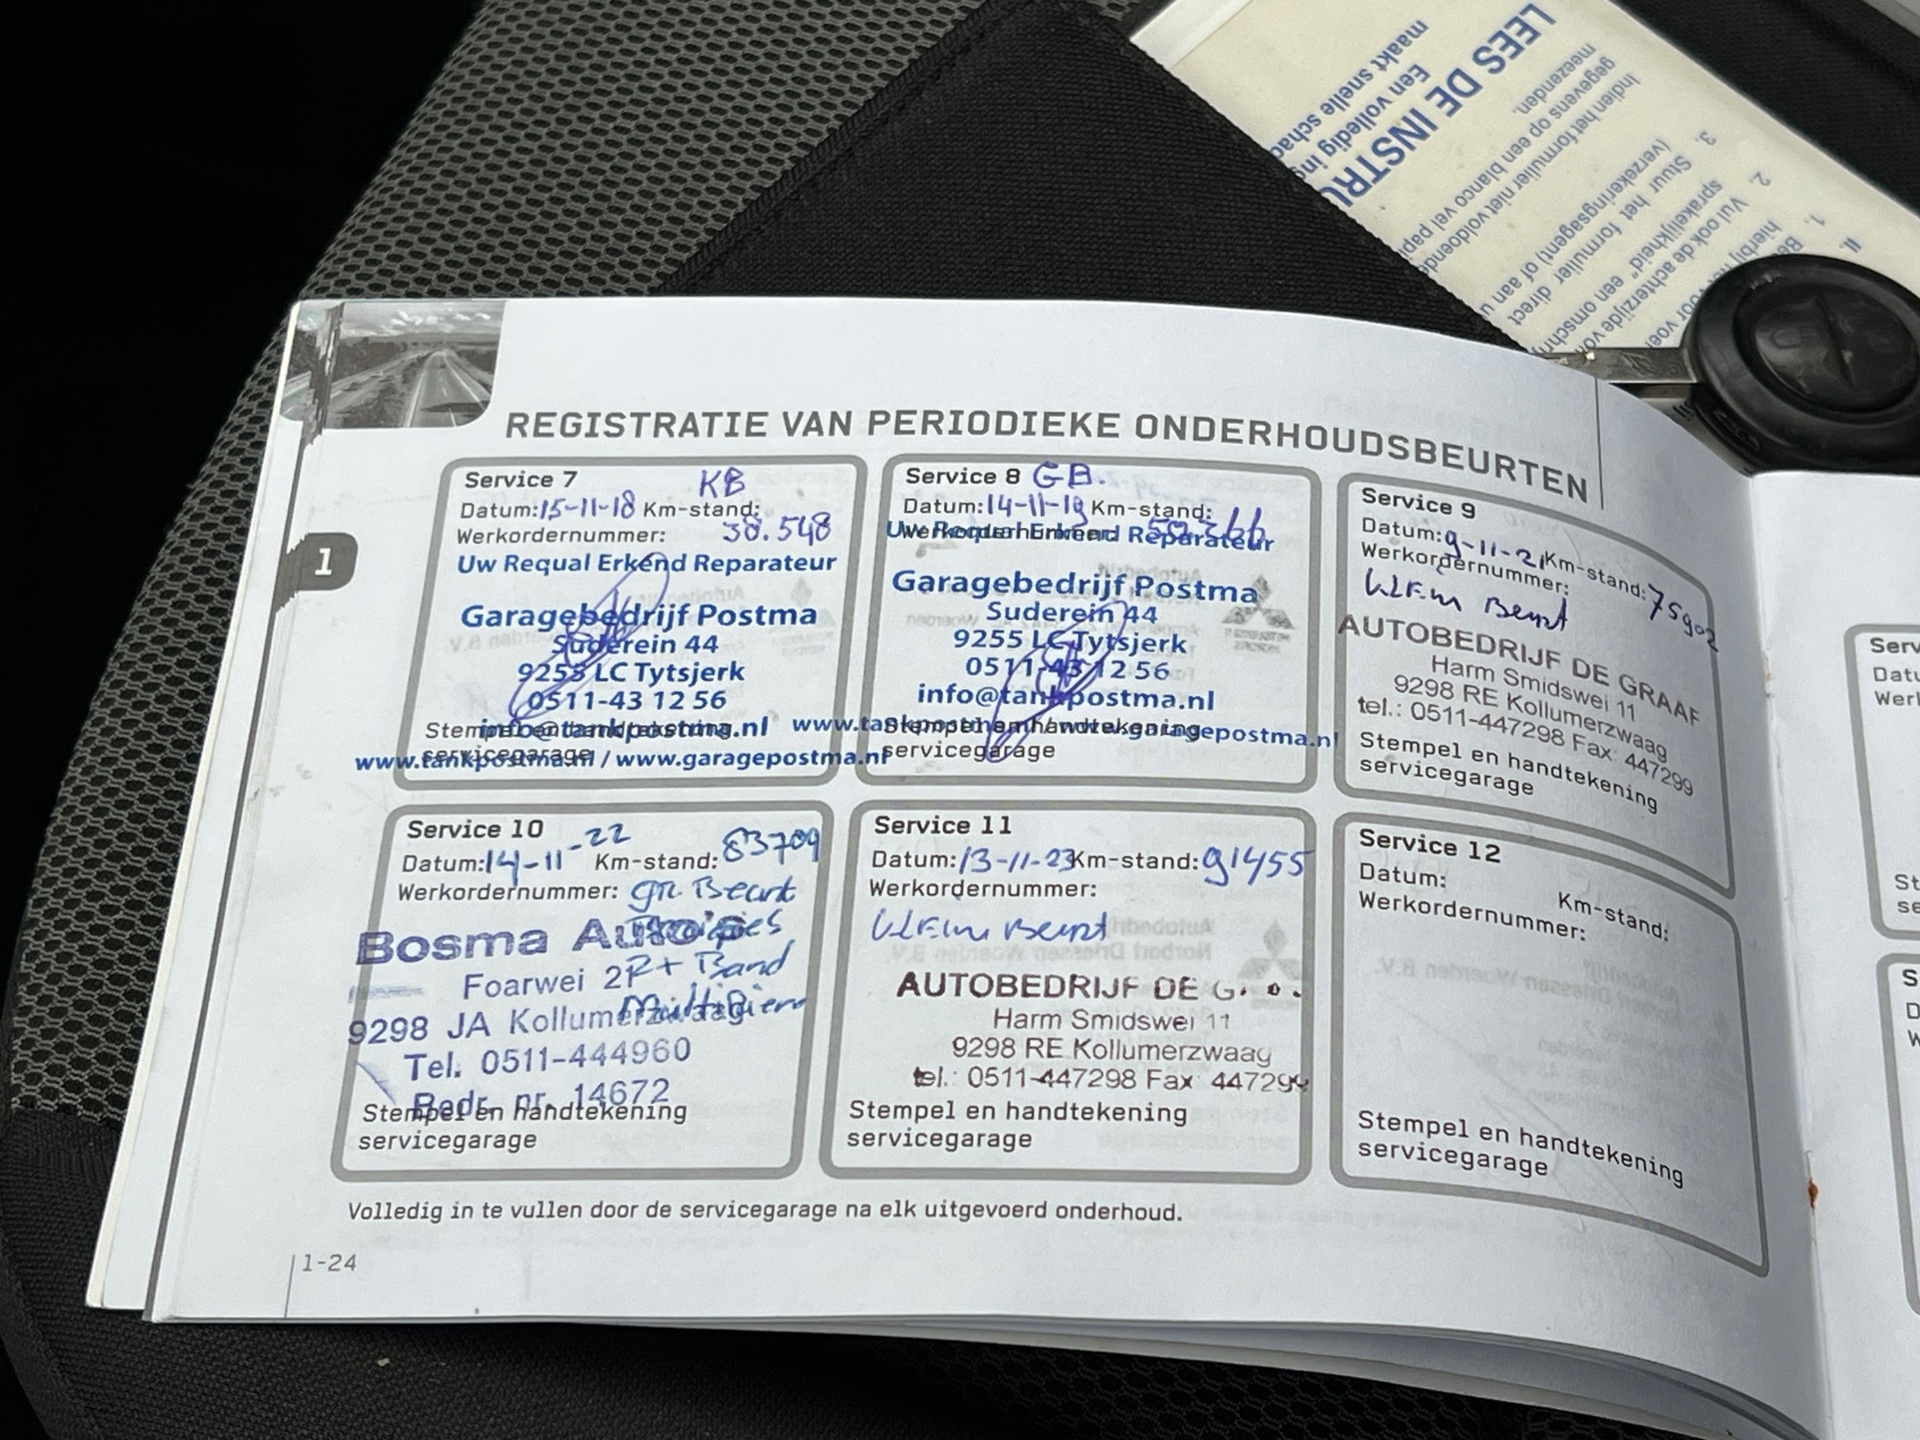 LEES DE INSTRU
Een volledig ing
maakt snelle schad
Indien het formulier niet voldoende
gegevens op een blanco vel papi
meezenden.
3.
Stuur het formulier direct
(verzekeringsagent) of aan u
2
Vul ook de achterzijde vo
sprakelijkheid" een omschrij
1.
II.
REGISTRATIE VAN PERIODIEKE ONDERHOUDSBEURTEN
1
Service 7 KB
Datum: 15-11-18 Km-stand:
Werkordernummer: 38.548
Uw Requal Erkend Reparateur
Garagebedrijf Postma
Suderein 44
9255 LC Tytsjerk
0511-43 12 56
info@tankpostma.nl
Stempel en handtekening
servicegarage
www.tankpostma.nl / www.garagepostma.nl
Service 8 GB.
Datum: 14-11-19 Km-stand:
Werkordernummer:
Uw Requal Erkend Reparateur
Garagebedrijf Postma
Suderein 44
9255 LC Tytsjerk
0511-43 12 56
info@tankpostma.nl
www.tankpostma.nl / www.garagepostma.nl
Stempel en handtekening
servicegarage
Service 9
Datum: 9-11-21 Km-stand: 75902
Werkordernummer:
AUTOBEDRIJF DE GRAAF
Harm Smidswei 11
9298 RE Kollumerzwaag
tel.: 0511-447298 Fax: 447299
Stempel en handtekening
servicegarage
Service 10
Datum: 14-11-22 Km-stand: 83709
Werkordernummer: gr. Beurt
Bosma Auto's
Foarwei 2
R+ Band
9298 JA Kollumerzwaag
Multiriem
Tel. 0511-444960
Bedr. nr. 14672
Stempel en handtekening
servicegarage
Service 11
Datum: 13-11-23 Km-stand: 91455
Werkordernummer:
AUTOBEDRIJF DE G
Harm Smidswei 11
9298 RE Kollumerzwaag
tel.: 0511-447298 Fax 447299
Stempel en handtekening
servicegarage
Service 12
Datum: Km-stand:
Werkordernummer:
Stempel en handtekening
servicegarage
Volledig in te vullen door de servicegarage na elk uitgevoerd onderhoud.
1-24
Serv
Datu
Werk
St
se
S
D
W